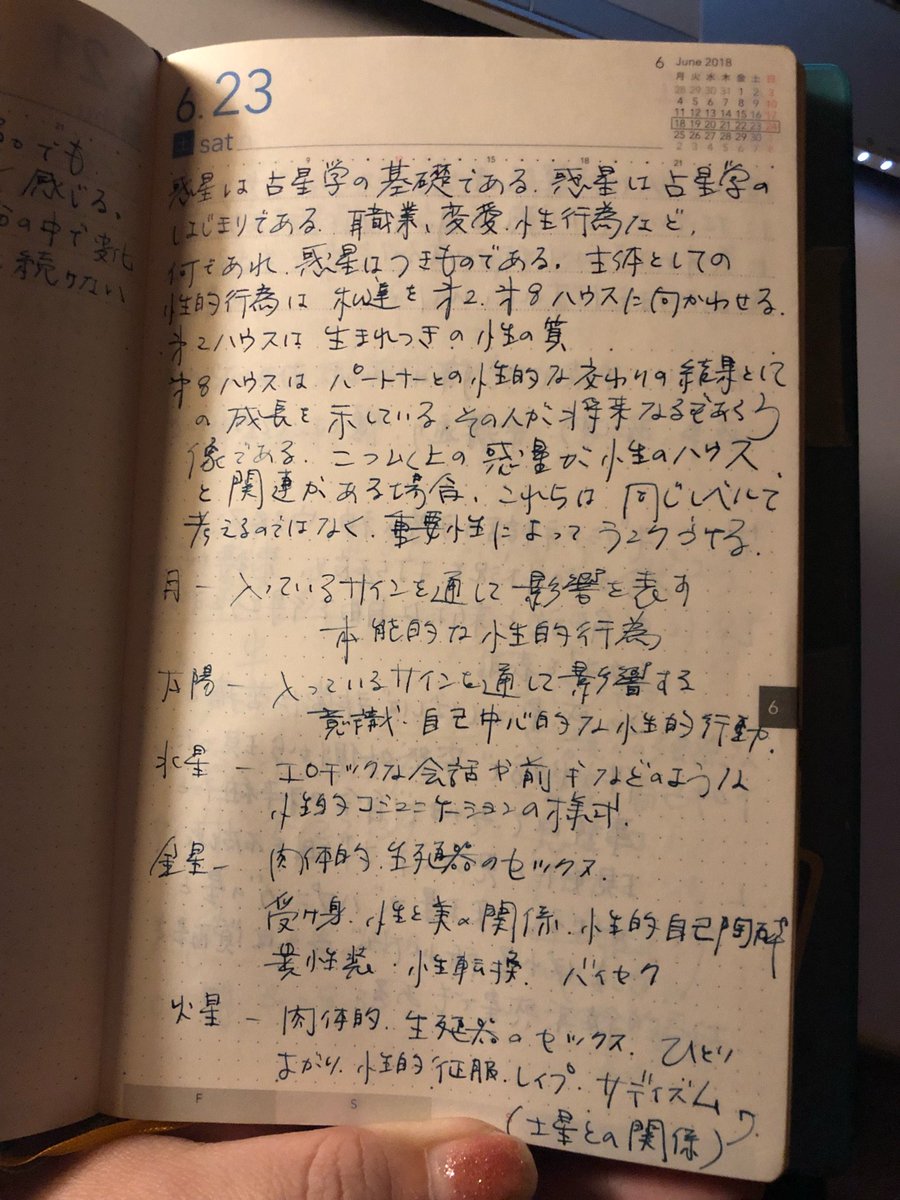 るでも
感じる。
の中で変化
続けない
6.23
土 sat
6 June 2018
月 火 水 木 金 土 日
28 29 30 31 1 2 3
4 5 6 7 8 9 10
11 12 13 14 15 16 17
18 19 20 21 22 23 24
25 26 27 28 29 30
2 3 4 5 6 7 8
9 15 18 21
惑星は占星学の基礎である。惑星は占星学の
はじまりである。職業、変愛、性行為など、
何であれ、惑星はつきものである。主体としての
性的行為は私達を才2.才8ハウスに向かわせる。
才2ハウスは生まれつきの性の質
才8ハウスはパートナーとの性的な交わりの結果として
の成長を示している。その人が将来なるであろう
像である。二つ以上の惑星が性のハウス
と関連がある場合、これらは同じレベルで
考えるのではなく、重要性によってランクづける。
月 ー 入っているサインを通して影響を表す
本能的な性的行為
太陽 ー 入っているサインを通して影響する
意識・自己中心的な性的行動。
水星 ー エロチックな会話や前ギなどのような
性的コミュニケーションの様式
金星 ー 肉体的、生殖器のセックス、
受け身、性と美の関係、性的自己陶酔
異性装・性転換、バイセク
6
火星 ー 肉体的、生殖器のセックス、ひとり
よがり、性的征服、レイプ、サディズム
(土星との関係)
F S